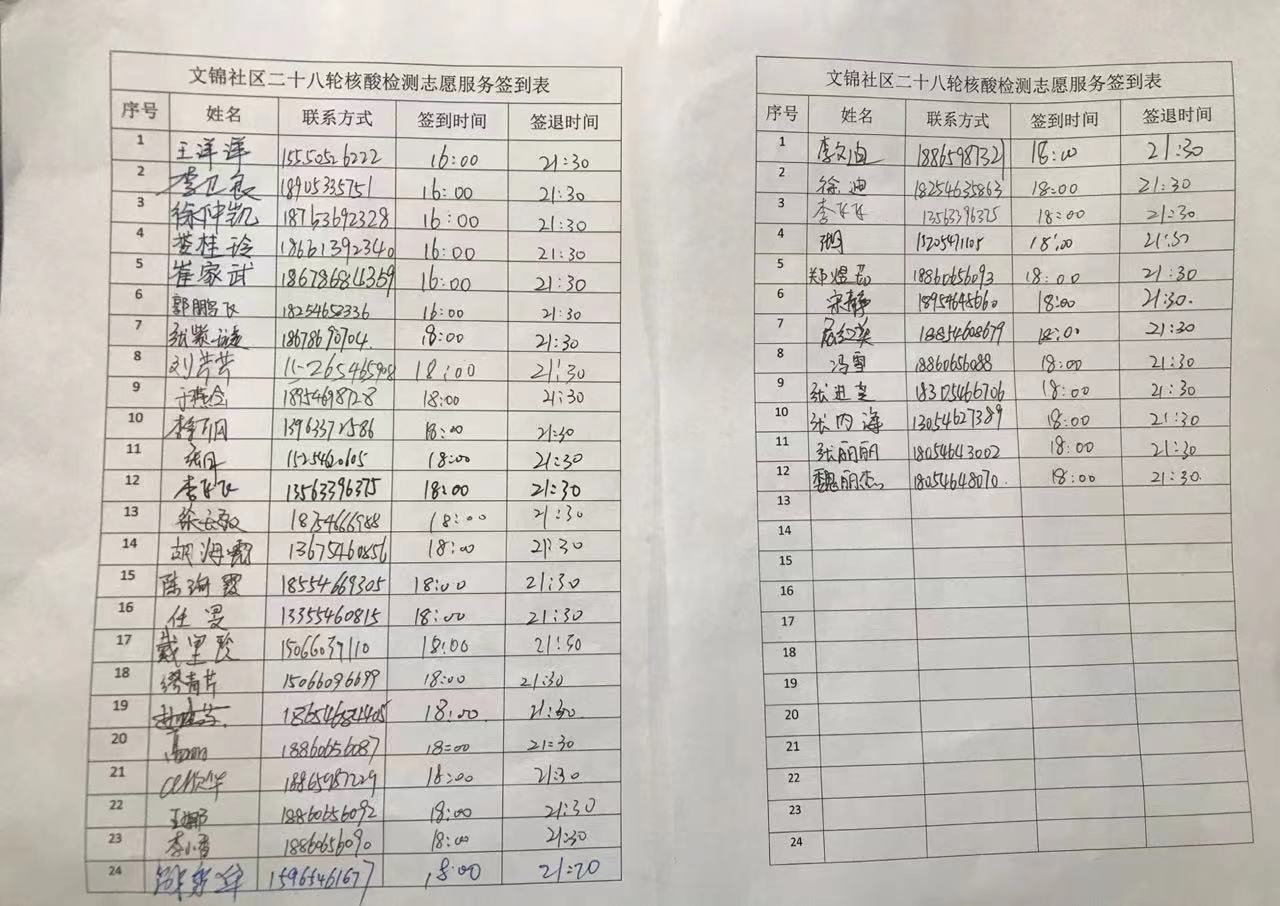 文锦社区二十八轮核酸检测志愿服务签到表
序号 姓名 联系方式 签到时间 签退时间
1 王洋洋 15550526222 16:00 21:30
2 李卫良 18905335751 16:00 21:30
3 徐仲凯 18753692328 16:00 21:30
4 娄桂玲 18661392340 16:00 21:30
5 崔家武 18678684359 16:00 21:30
6 郭鹏飞 18254652336 16:00 21:30
7 18678690704 18:00 21:30
8 刘芹芹 18:00 21:30
9 于燕令 18954698728 18:00 21:30
10 18:00 21:30
11 18:00 21:30
12 李飞飞 13563396375 18:00 21:30
13 18754666988 18:00 21:30
14 胡海霞 13675460856 18:00 21:30
15 18554669305 18:00 21:30
16 任旻 13355460815 18:00 21:30
17 18:00 21:30
18 15066096699 18:00 21:30
19 18:00 21:30
20 18860656087 18:00 21:30
21 18865987229 18:00 21:30
22 王娜 18860656092 18:00 21:30
23 李小香 18860656090 18:00 21:30
24 15965461677 18:00
文锦社区二十八轮核酸检测志愿服务签到表
序号 姓名 联系方式 签到时间 签退时间
1 李文迪 18865987321 18:00 21:30
2 徐迪 18254635863 18:00 21:30
3 李飞飞 13563396375 18:00 21:30
4 18:00 21:30
5 18860656093 18:00 21:30
6 宋静 18954648660 18:00 21:30.
7 18854608679 18:00 21:30
8 冯雪 18860656088 18:00 21:30
9 18305466706 18:00 21:30
10 张内海 13054627389 18:00 21:30
11 张丽丽 18054643002 18:00 21:30
12 魏丽杰 18054648070. 18:00 21:30.
13
14
15
16
17
18
19
20
21
22
23
24